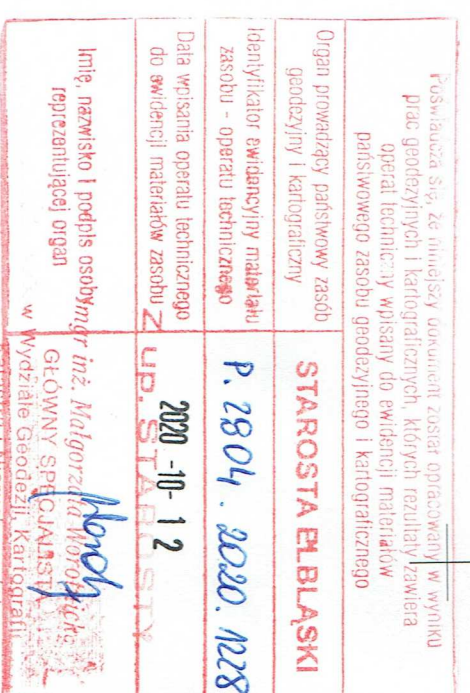 Poświadcza się, że niniejszy dokument został opracowany w wyniku
prac geodezyjnych i kartograficznych, których rezultaty zawiera
operat techniczny wpisany do ewidencji materiałów
państwowego zasobu geodezyjnego i kartograficznego
Organ prowadzący państwowy zasób
geodezyjny i kartograficzny
STAROSTA ELBLĄSKI
Identyfikator ewidencyjny materiału
zasobu - operatu technicznego
P. 2804. 2020. 1228
Data wpisania operatu technicznego
do ewidencji materiałów zasobu
2020 -10- 12
Z up. STAROSTY
Imię, nazwisko i podpis osoby
reprezentującej organ
mgr inż. Małgorzata
GŁÓWNY SPECJALISTA
w Wydziale Geodezji, Kartografii